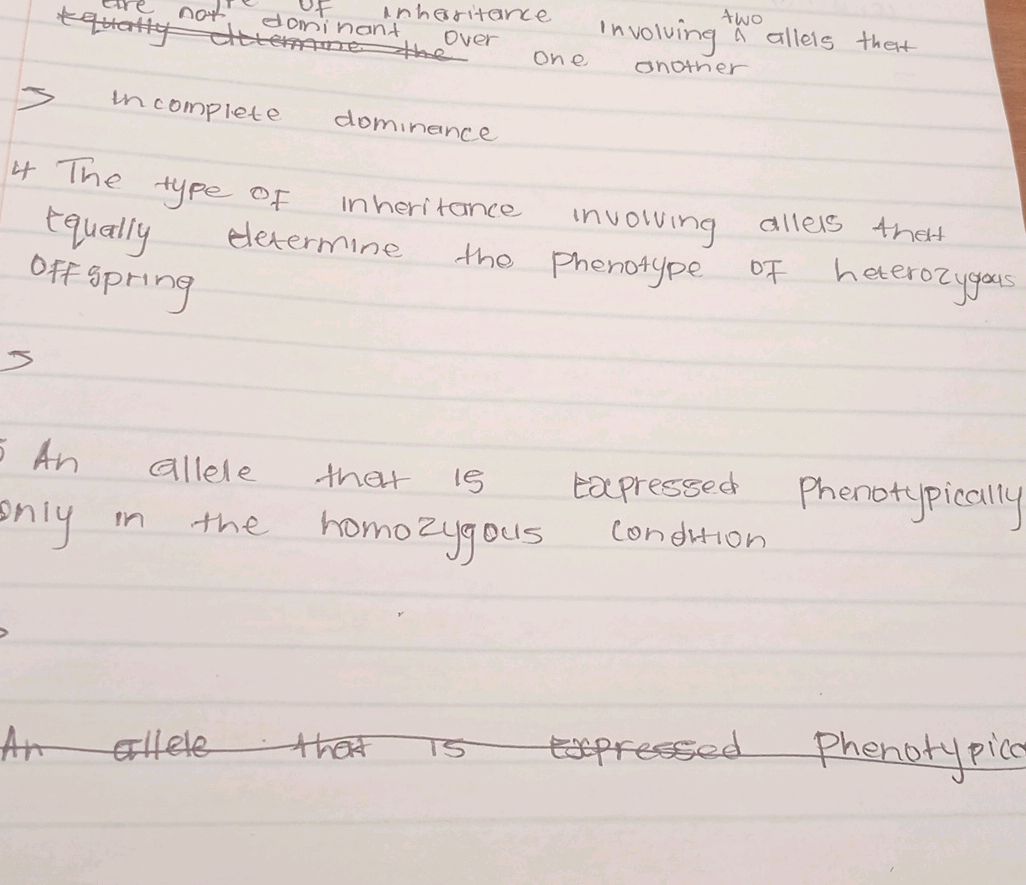 are not OF inheritance Involving two allels that
equally determine the
dominant over one another
> incomplete dominance
4 The type OF inheritance involving allels that
Equally determine the phenotype OF heterozygous
OFFspring
>
5 An allele that is Expressed Phenotypically
only in the homozygous condition
>
An allele that is Expressed Phenotypica